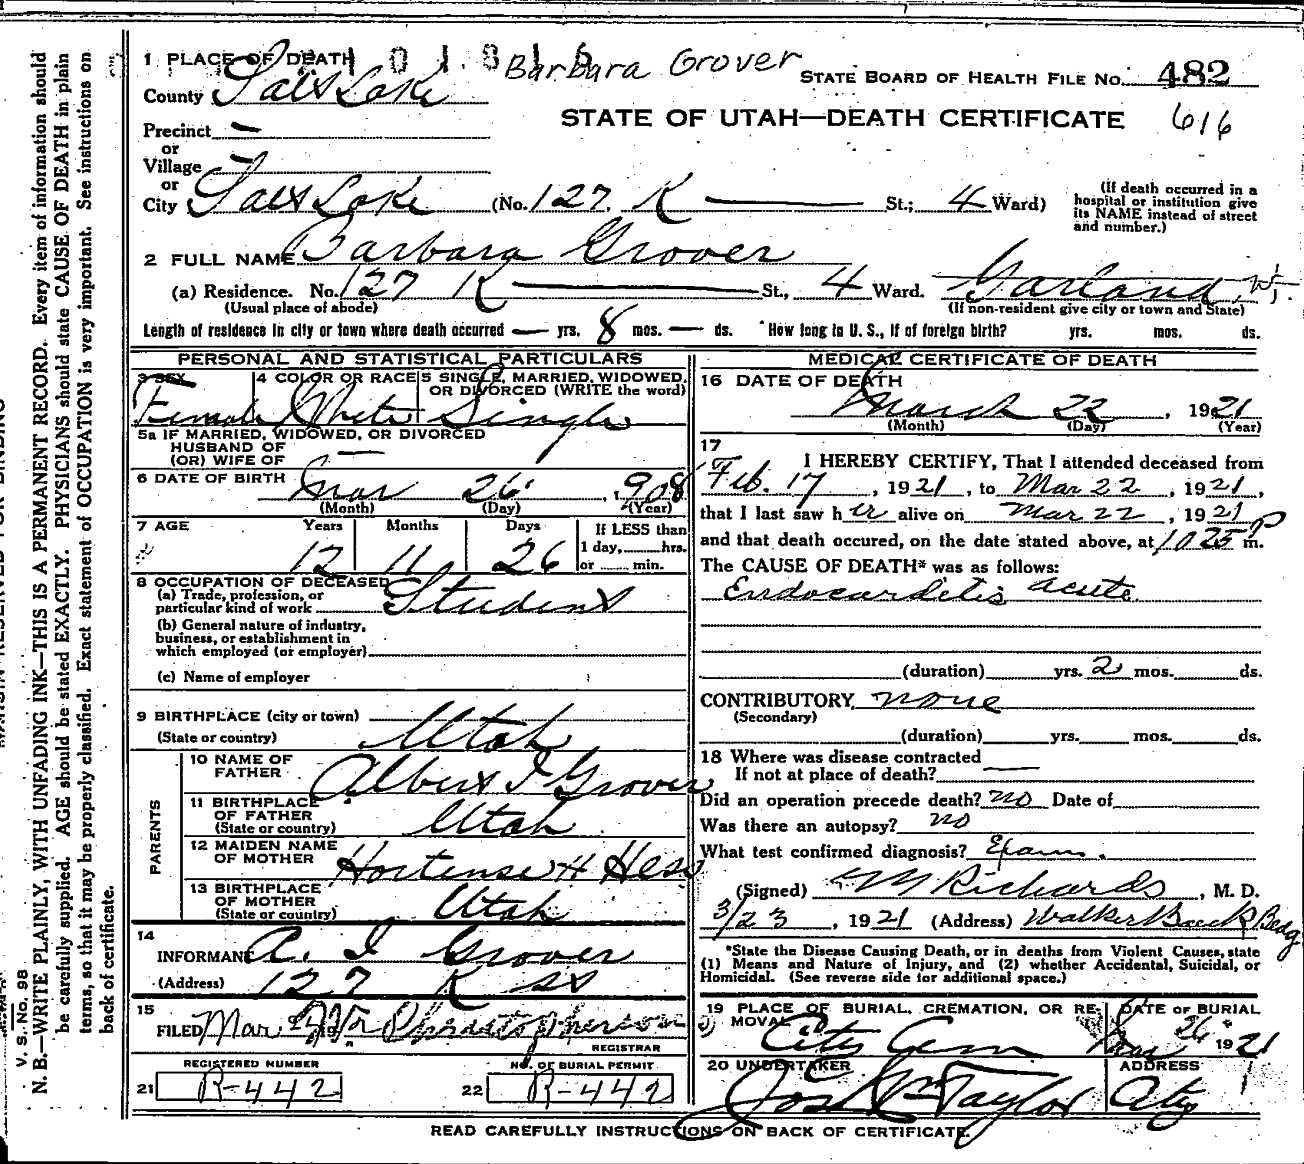 MARGIN RESERVED FOR BINDING
V. S. No. 98
N. B.—WRITE PLAINLY, WITH UNFADING INK—THIS IS A PERMANENT RECORD. Every item of information should
be carefully supplied. AGE should be stated EXACTLY. PHYSICIANS should state CAUSE OF DEATH in plain
terms, so that it may be properly classified. Exact statement of OCCUPATION is very important. See instructions on
back of certificate.
Barbara Grover
STATE BOARD OF HEALTH FILE NO. 482
STATE OF UTAH—DEATH CERTIFICATE 616
1 PLACE OF DEATH
County Salt Lake
Precinct —
or
Village —
or
City Salt Lake (No. 127 K St.; 4 Ward)
(If death occurred in a
hospital or institution give
its NAME instead of street
and number.)
2 FULL NAME Barbara Grover
(a) Residence. No. 127 K St., 4 Ward. Garland, Ut.
(Usual place of abode) (If non-resident give city or town and State)
Length of residence in city or town where death occurred — yrs. 8 mos. — ds. How long in U. S., if of foreign birth? yrs. mos. ds.
PERSONAL AND STATISTICAL PARTICULARS
3 SEX 4 COLOR OR RACE 5 SINGLE, MARRIED, WIDOWED,
OR DIVORCED (WRITE the word)
Female White Single
5a IF MARRIED, WIDOWED, OR DIVORCED
HUSBAND OF
(OR) WIFE OF —
6 DATE OF BIRTH Mar 26, 1908
(Month) (Day) (Year)
7 AGE Years Months Days If LESS than
12 11 26 1 day, hrs.
or min.
8 OCCUPATION OF DECEASED
(a) Trade, profession, or
particular kind of work Student
(b) General nature of industry,
business, or establishment in
which employed (or employer)
(c) Name of employer
9 BIRTHPLACE (city or town)
(State or country) Utah
PARENTS
10 NAME OF
FATHER Albert I Grover
11 BIRTHPLACE
OF FATHER
(State or country) Utah
12 MAIDEN NAME
OF MOTHER Hortense H Hess
13 BIRTHPLACE
OF MOTHER
(State or country) Utah
14
INFORMANT A. I Grover
(Address) 127 K St
15
FILED Mar
REGISTRAR
REGISTERED NUMBER NO. OF BURIAL PERMIT
21 R-442 22 R-442
MEDICAL CERTIFICATE OF DEATH
16 DATE OF DEATH
March 22, 1921
(Month) (Day) (Year)
17
I HEREBY CERTIFY, That I attended deceased from
Feb. 17, 1921, to Mar 22, 1921,
that I last saw her alive on Mar 22, 1921
and that death occured, on the date stated above, at 1025 P m.
The CAUSE OF DEATH* was as follows:
Endocarditis acute
(duration) yrs. 2 mos. ds.
CONTRIBUTORY none
(Secondary)
(duration) yrs. mos. ds.
18 Where was disease contracted
If not at place of death? —
Did an operation precede death? no Date of
Was there an autopsy? no
What test confirmed diagnosis? Exam.
(Signed) Richards, M. D.
3/23, 1921 (Address) Walker Bank Bldg
*State the Disease Causing Death, or in deaths from Violent Causes, state
(1) Means and Nature of Injury, and (2) whether Accidental, Suicidal, or
Homicidal. (See reverse side for additional space.)
19 PLACE OF BURIAL, CREMATION, OR RE-
MOVAL City Cem
DATE OF BURIAL
Mar 26 1921
20 UNDERTAKER
Jos Wm Taylor
ADDRESS
City
READ CAREFULLY INSTRUCTIONS ON BACK OF CERTIFICATE.